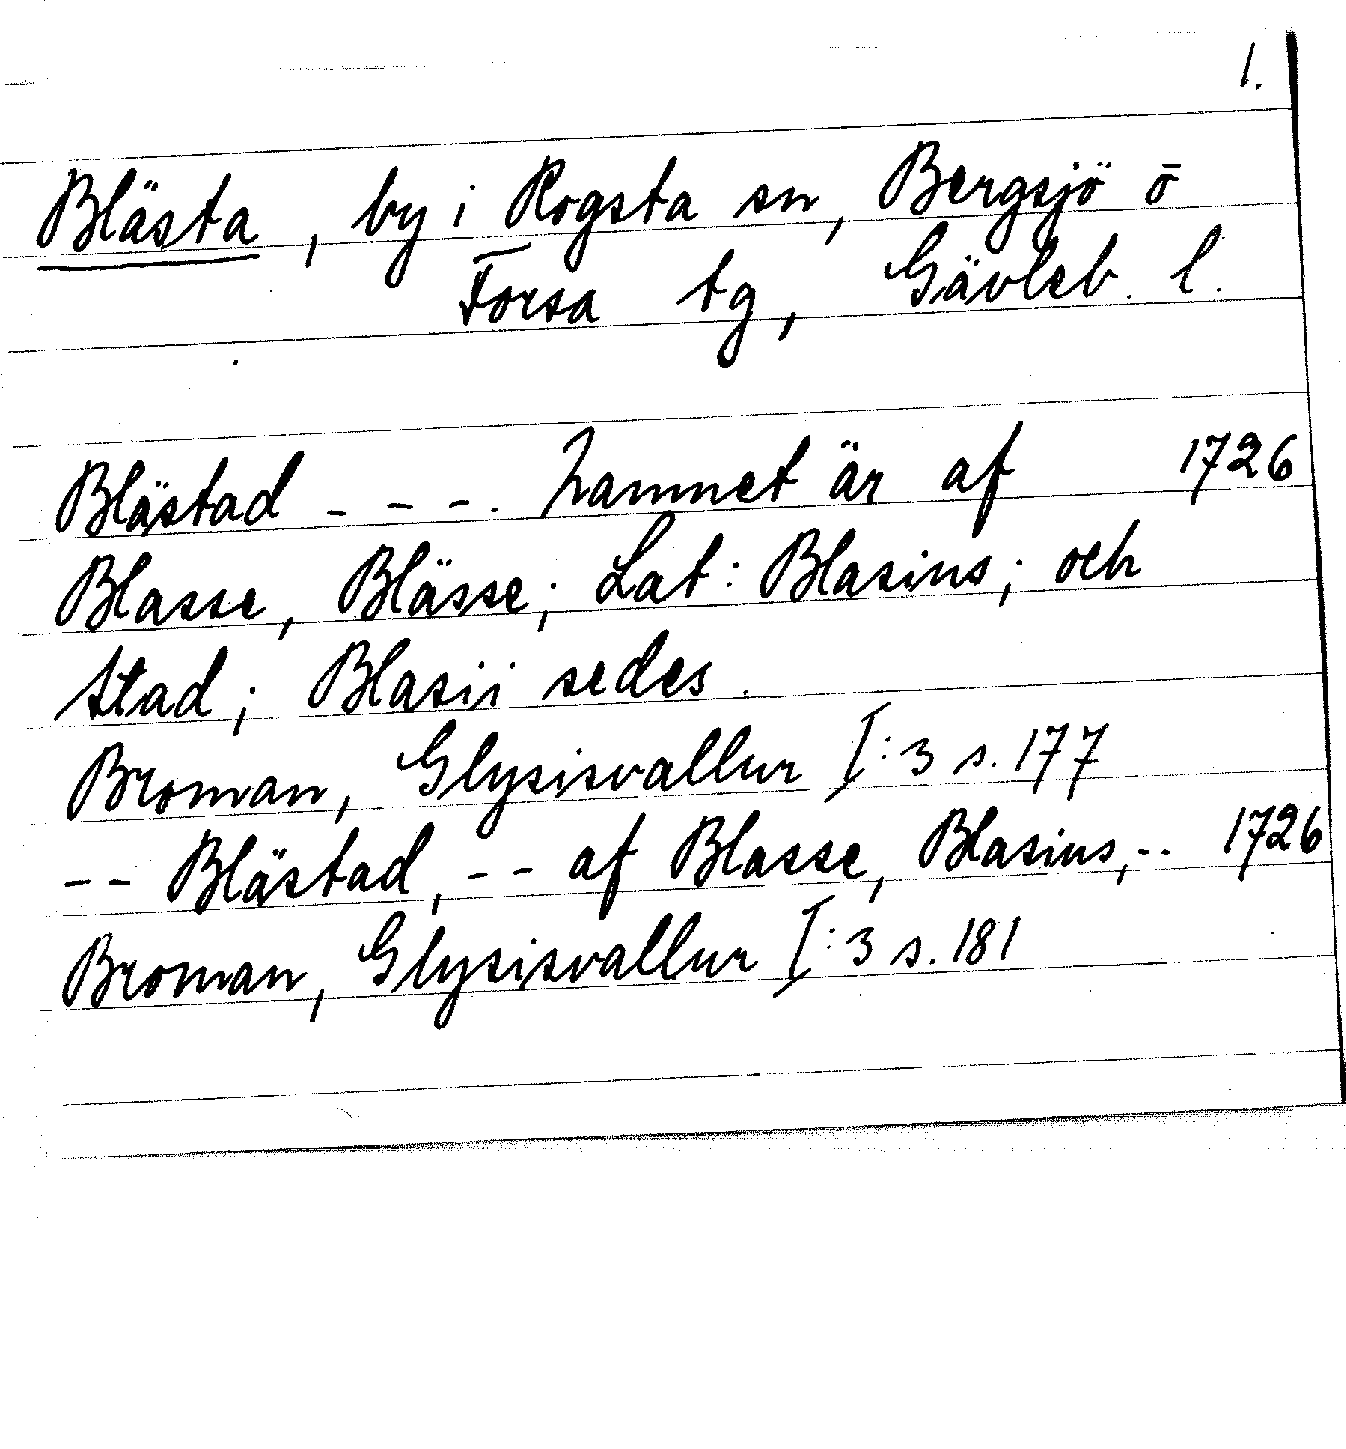 1.
Blästa, by i Rogsta sn, Bergsjö o
Forsa tg, Gävleb. l.
Blästad - - -. Namnet är af 1726
Blasse, Blässe; Lat: Blasius; och
stad; Blasii sedes.
Broman, Glysisvallur I:3 s. 177
-- Blästad, -- af Blasse, Blasius,-- 1726
Broman, Glysisvallur I:3 s. 181